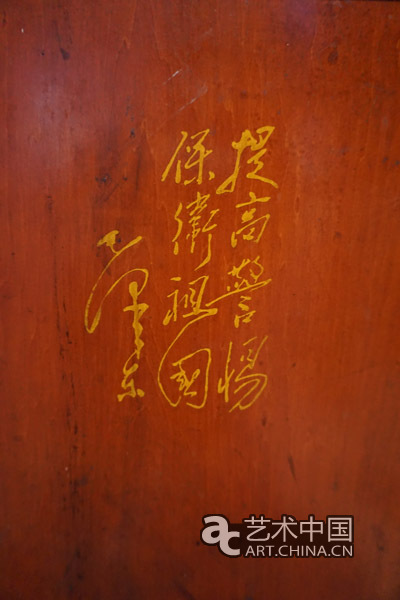 提高警惕
保衛祖國
毛泽东
ac 艺术中国
ART.CHINA.CN